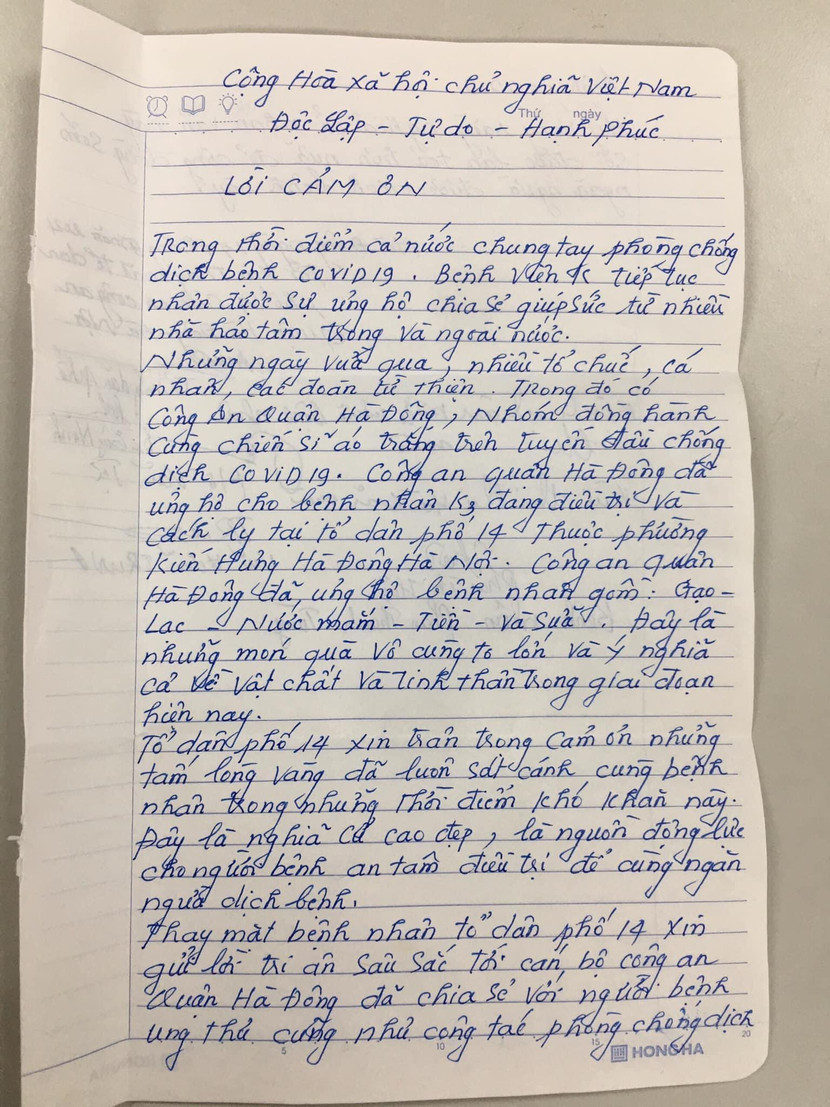 Cộng Hòa xã hội chủ nghĩa Việt Nam
Thứ ngày
Độc Lập - Tự do - Hạnh phúc
LỜI CẢM ƠN
Trong thời điểm cả nước chung tay phòng chống
dịch bệnh COVID19. Bệnh viện K tiếp tục
nhận được sự ủng hộ chia sẻ giúp sức từ nhiều
nhà hảo tâm trong và ngoài nước.
Những ngày vừa qua, nhiều tổ chức, cá
nhân, các đoàn từ thiện. Trong đó có
Công An Quận Hà Đông, Nhóm đồng hành
cùng chiến sĩ áo trắng trên tuyến đầu chống
dịch COVID19. Công an quận Hà Đông đã
ủng hộ cho bệnh nhân K3 đang điều trị và
cách ly tại tổ dân phố 14 thuộc phường
Kiến Hưng Hà Đông Hà Nội. Công an quận
Hà Đông đã ủng hộ bệnh nhân gồm: Gạo -
Lạc - Nước mắm - Tiền - Và Sữa. Đây là
những món quà vô cùng to lớn và ý nghĩa
cả về vật chất và tinh thần trong giai đoạn
hiện nay.
Tổ dân phố 14 xin trân trọng cảm ơn những
tấm lòng vàng đã luôn sát cánh cùng bệnh
nhân trong những thời điểm khó khăn này.
Đây là nghĩa cử cao đẹp, là nguồn động lực
cho người bệnh an tâm điều trị để cùng ngăn
ngừa dịch bệnh.
Thay mặt bệnh nhân tổ dân phố 14 xin
gửi lời tri ân sâu sắc tới cán bộ công an
Quận Hà Đông đã chia sẻ với người bệnh
ung thư cũng như công tác phòng chống dịch
5 10 15 20
HONGHA